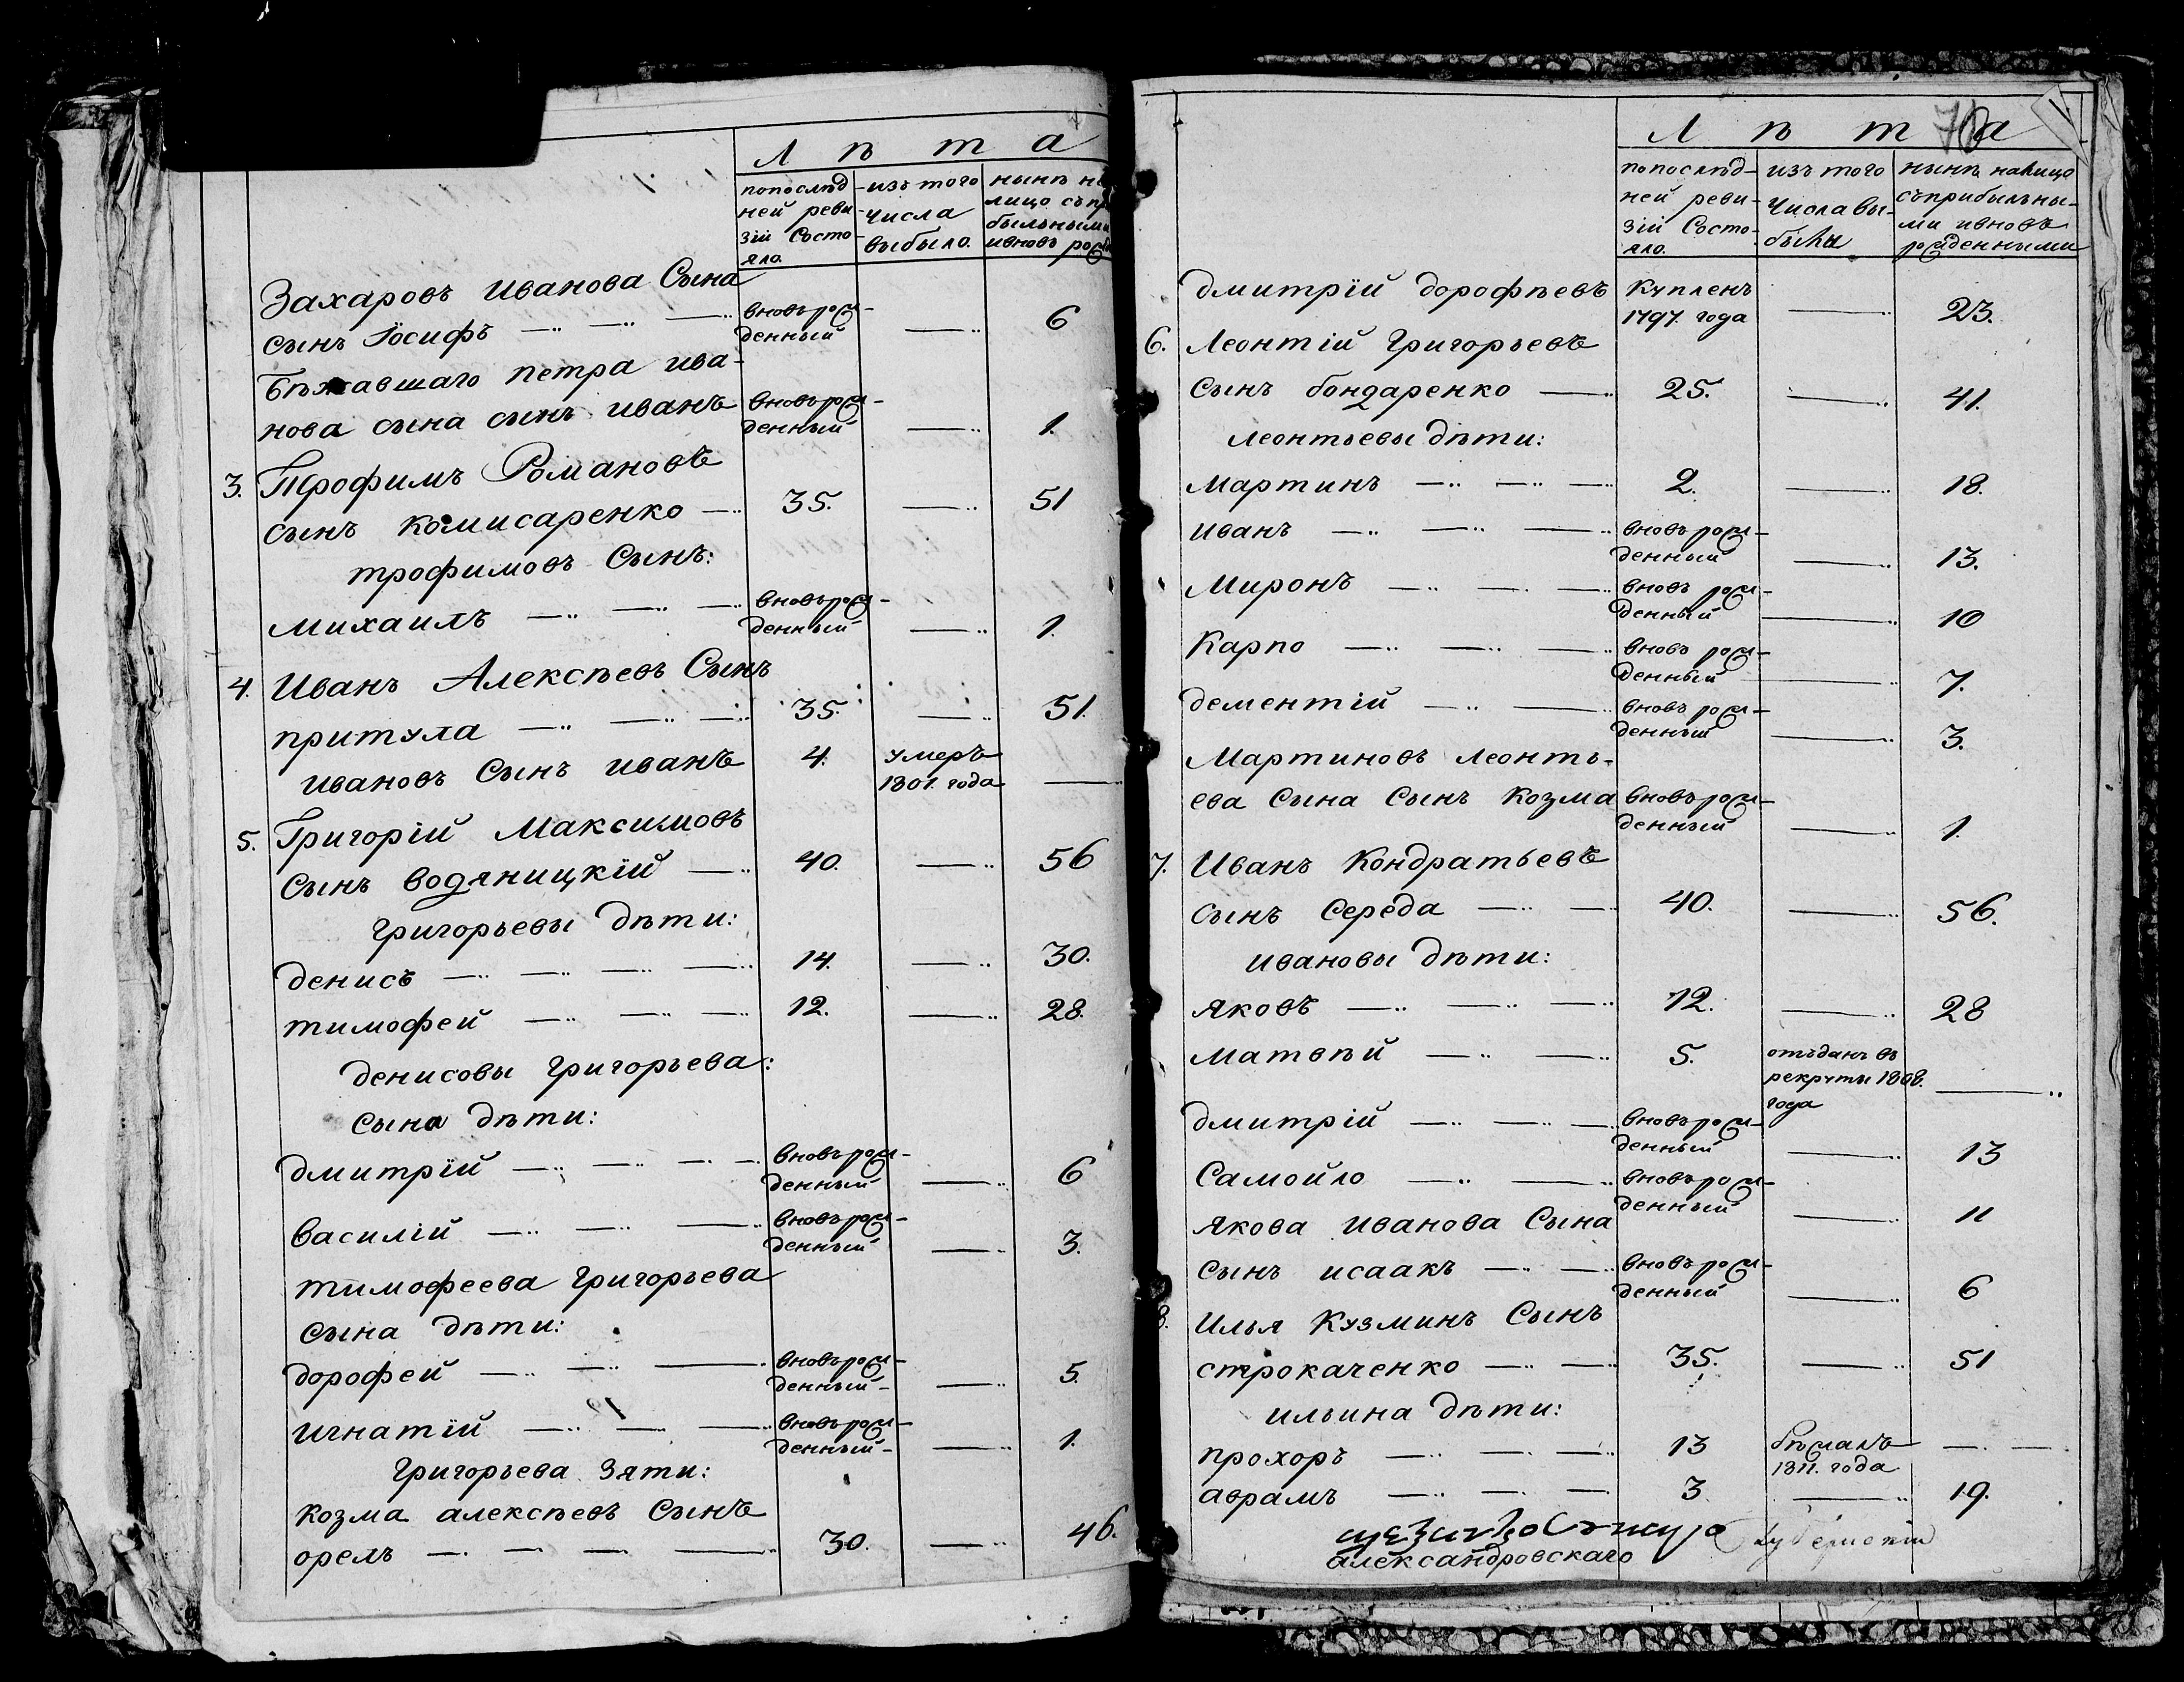 Лѣта
попослѣд-
ней реви-
зіи Состо-
яло.
изъ того
числа
выбыло.
нынѣ на
лицо съпри
быльными
ивновь рож
Захаровъ иванова Сына
сынъ Іосифъ вновьрож-
денный 6
Бѣжавшаго петра ива-
нова сына сынъ иванъ вновьрож-
денный 1.
3. Трофимъ Романовъ
сынъ комисаренко 35. 51
трофимовъ Сынъ:
михаилъ вновьрож-
денный 1.
4. Иванъ Алексѣевъ Сынъ
притула 35. 51.
ивановъ Сынъ иванъ 4. умеръ
1801. года
5. Григорій Максимовъ
Сынъ водяницкій 40. 56
григорьевы дѣти:
денисъ 14. 30.
тимофей 12. 28.
денисовы григорьева:
сына дѣти:
дмитрій вновьрож-
денный 6
василій вновьрож-
денный 3.
тимофеева григорьева
сына дѣти:
дорофей вновьрож-
денный 5.
игнатій вновьрож-
денный 1.
григорьева зяти:
козма алексѣевъ сынъ
орелъ 30. 46.
Лѣта
попослѣд-
ней реви-
зіи Состо-
яло.
изъ того
числа вы-
было
нынѣ налицо
съприбыльны-
ми ивновь
рожденными
дмитрій дорофѣевъ купленъ
1797. года 23.
6. Леонтій григорьевъ
сынъ бондаренко 25. 41.
леонтьевы дѣти:
мартинъ 2. 18.
иванъ вновьрож-
денный 13.
миронъ вновь рож-
денный 10
Карпо вновь рож-
денный 7.
дементій вновь рож-
денный 3.
Мартиновъ леонть-
ева сына сынъ козма вновьрож-
денный 1.
7. Иванъ кондратьевъ
сынъ середа 40. 56.
ивановы дѣти:
яковъ 12. 28
матвѣй 5. отъданъ въ
рекруты 1808.
года
дмитрій вновьрож-
денный 13
Самойло вновьрож-
денный 11
якова иванова сына
сынъ исаакъ вновьрож-
денный 6
8. илья кузминъ Сынъ
строкаченко 35. 51
ильина дѣти:
прохоръ 13 бѣжалъ
1811. года
аврамъ 3 19.
александровскаго